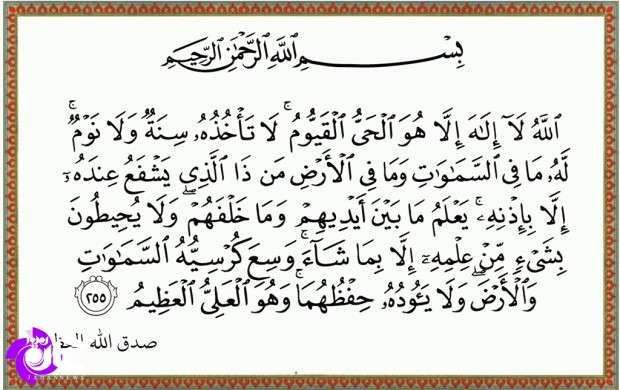 بِسْمِ اللَّهِ الرَّحْمَٰنِ الرَّحِيمِ
اللَّهُ لَآ إِلَٰهَ إِلَّا هُوَ الْحَيُّ الْقَيُّومُ ۚ لَا تَأْخُذُهُۥ سِنَةٌ وَلَا نَوْمٌ ۚ
لَّهُۥ مَا فِي السَّمَٰوَٰتِ وَمَا فِي الْأَرْضِ مَن ذَا الَّذِي يَشْفَعُ عِندَهُۥٓ
إِلَّا بِإِذْنِهِۦ ۚ يَعْلَمُ مَا بَيْنَ أَيْدِيهِمْ وَمَا خَلْفَهُمْ ۖ وَلَا يُحِيطُونَ
بِشَيْءٍ مِّنْ عِلْمِهِۦٓ إِلَّا بِمَا شَآءَ ۚ وَسِعَ كُرْسِيُّهُ السَّمَٰوَٰتِ
وَالْأَرْضَ ۖ وَلَا يَـُٔودُهُۥ حِفْظُهُمَا ۚ وَهُوَ الْعَلِيُّ الْعَظِيمُ ٢٥٥
صدق الله